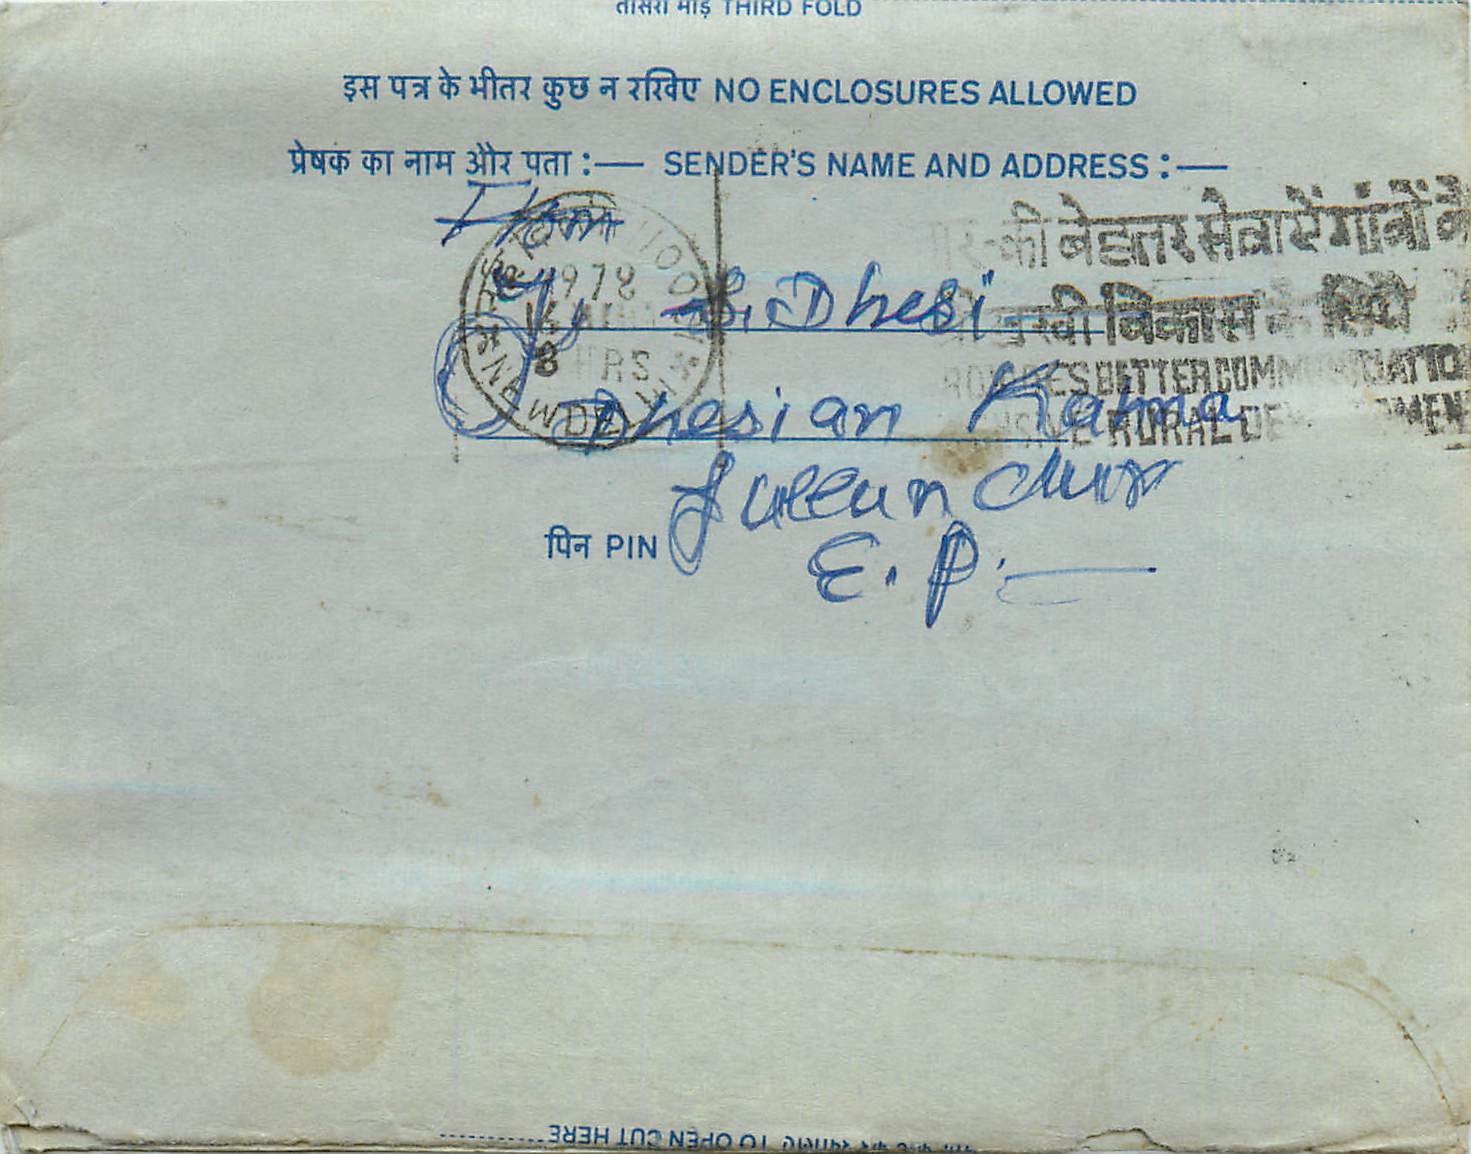 तीसरा मोड़ THIRD FOLD
इस पत्र के भीतर कुछ न रखिए NO ENCLOSURES ALLOWED
प्रेषक का नाम और पता :— SENDER'S NAME AND ADDRESS :—
From
S. Dhesi
Dhesian Kahna
Jullundur
पिन PIN
E. P. —
1978
16
8 HRS
की बेहतर सेवाऐं गांवों के
विकास के लिये
BETTER COMMUNICATION
RURAL DEVELOPMENT
TO OPEN CUT HERE